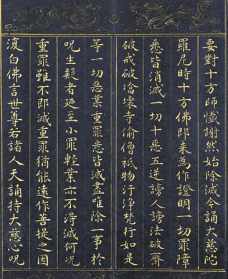 要對十方師懺謝然始除滅今誦大悲陀
羅尼時十方師即來為作證明一切罪障
悉皆消滅一切十惡五逆謗人謗法破齋
破戒破塔壞寺偷僧祇物汙淨梵行如是
等一切惡業重罪悉皆滅盡唯除一事於
呪生疑者廼至小罪輕業亦不得滅何況
重罪雖不即滅重罪猶能遠作菩提之因
復白佛言世尊若諸人天誦持大悲心呪